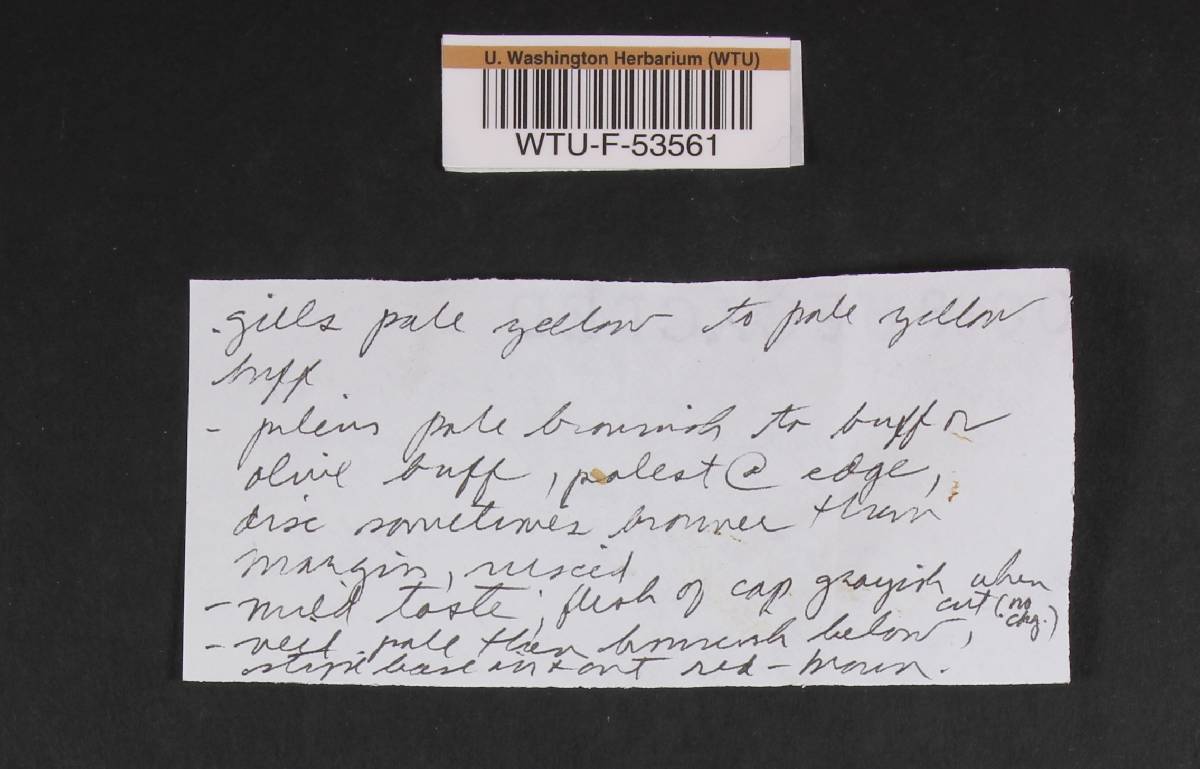 U. Washington Herbarium (WTU)
WTU-F-53561
- gills pale yellow to pale yellow
buff
- pileus pale brownish to buff or
olive buff, palest @ edge,
disc sometimes browner than
margin, viscid
- mild taste, flesh of cap grayish when
cut (no chg.)
- veil pale then brownish below,
stipe base in & out red-brown.